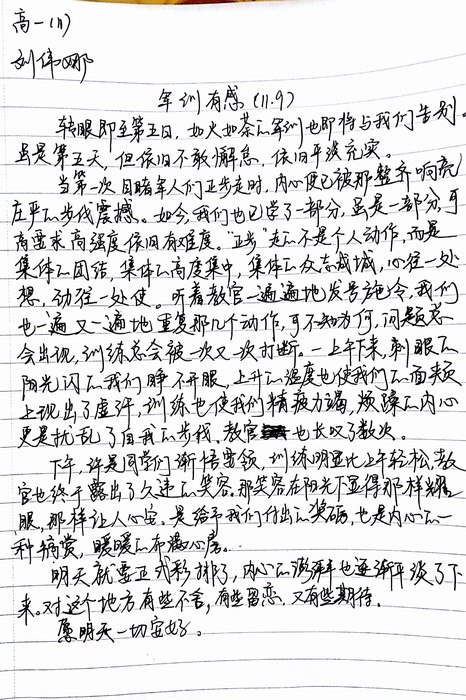 高一(11)
刘伟娜
军训有感(11.9)
转眼即至第五日，如火如荼的军训也即将与我们告别。
虽是第五天，但依旧不敢懈怠，依旧平淡充实。
当第一次目睹军人们正步走时，内心便已被那整齐响亮
庄严的步伐震撼。如今，我们也已学了一部分，虽是一部分，可
高要求高强度依旧有难度。“正步”走的不是个人动作，而是
集体的团结，集体的高度集中，集体的众志成城，心往一处
想，劲往一处使。听着教官一遍遍地发号施令，我们
也一遍又一遍地重复那几个动作，可不知为何，问题总
会出现，训练总会被一次又一次打断。一上午下来，刺眼的
阳光闪的我们睁不开眼，上升的温度也使我们的面颊
上现出了虚汗，训练也使我们精疲力竭，烦躁的内心
更是扰乱了自我的步伐，教官也长叹了数次。
下午，许是同学们渐悟要领，训练明显比上午轻松，教
官也终于露出了久违的笑容。那笑容在阳光下显得那样耀
眼，那样让人心安。是给予我们付出的奖励，也是内心的一
种犒赏，暖暖的布满心房。
明天就要正式彩排了，内心的澎湃也逐渐平淡了下
来。对这个地方有些不舍，有些留恋，又有些期待。
愿明天一切安好。